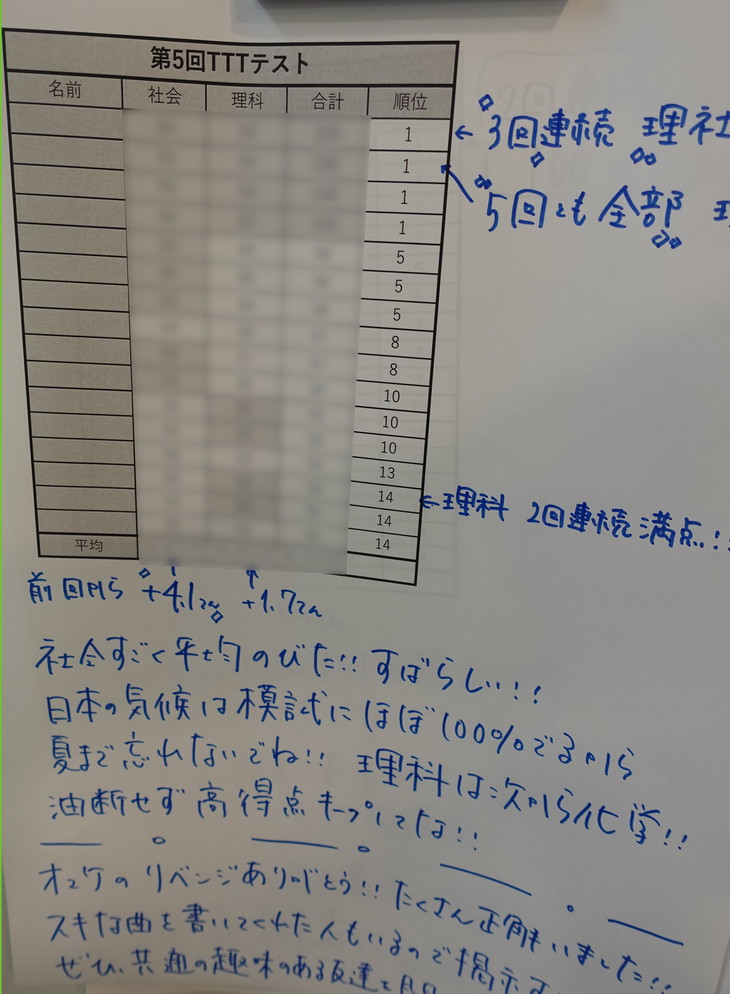 第5回TTTテスト
名前 社会 理科 合計 順位
1
1
1
1
5
5
5
8
8
10
10
10
13
14
14
平均 14
3回連続 理社
5回とも全部 理
理科 2回連続満点!!
前回から +4.1てん +1.7てん
社会すごく平均のびた!! すばらしい!!
日本の気候は模試にほぼ100%でるから
夏まで忘れないでね!! 理科は次から化学!!
油断せず高得点キープしてな!!
オマケのリベンジありがとう!! たくさん正解もいました!!
スキな曲を書いてくれた人もいるので掲示
ぜひ、共通の趣味のある友達と